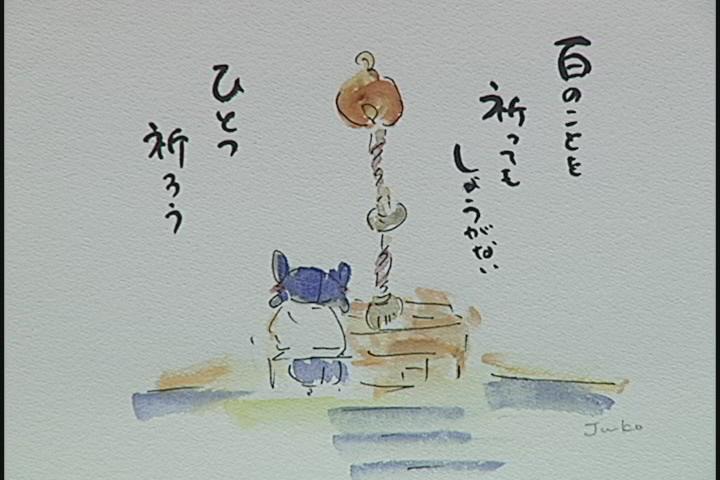 百のことを
祈っても
しょうがない
ひとつ
祈ろう
Junko